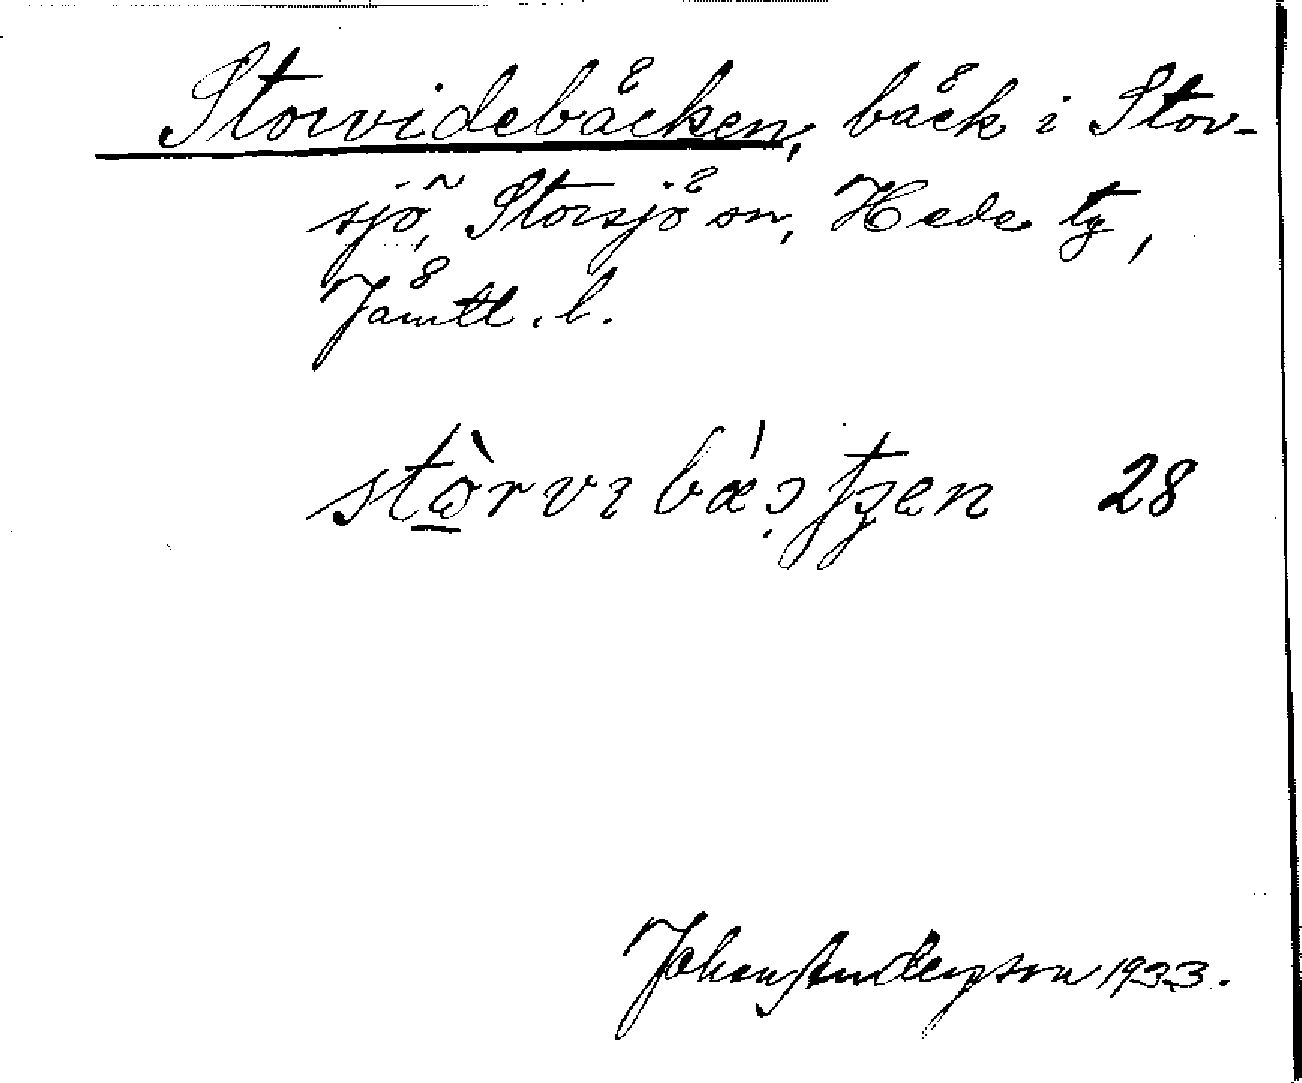 Storvidebäcken, bäck i Stor-
sjö, Storsjö sn, Hede tg,
Jämtl. l.
stò̱rvı bǽ́ɔʈʒen 28
Johan Anderson 1933.